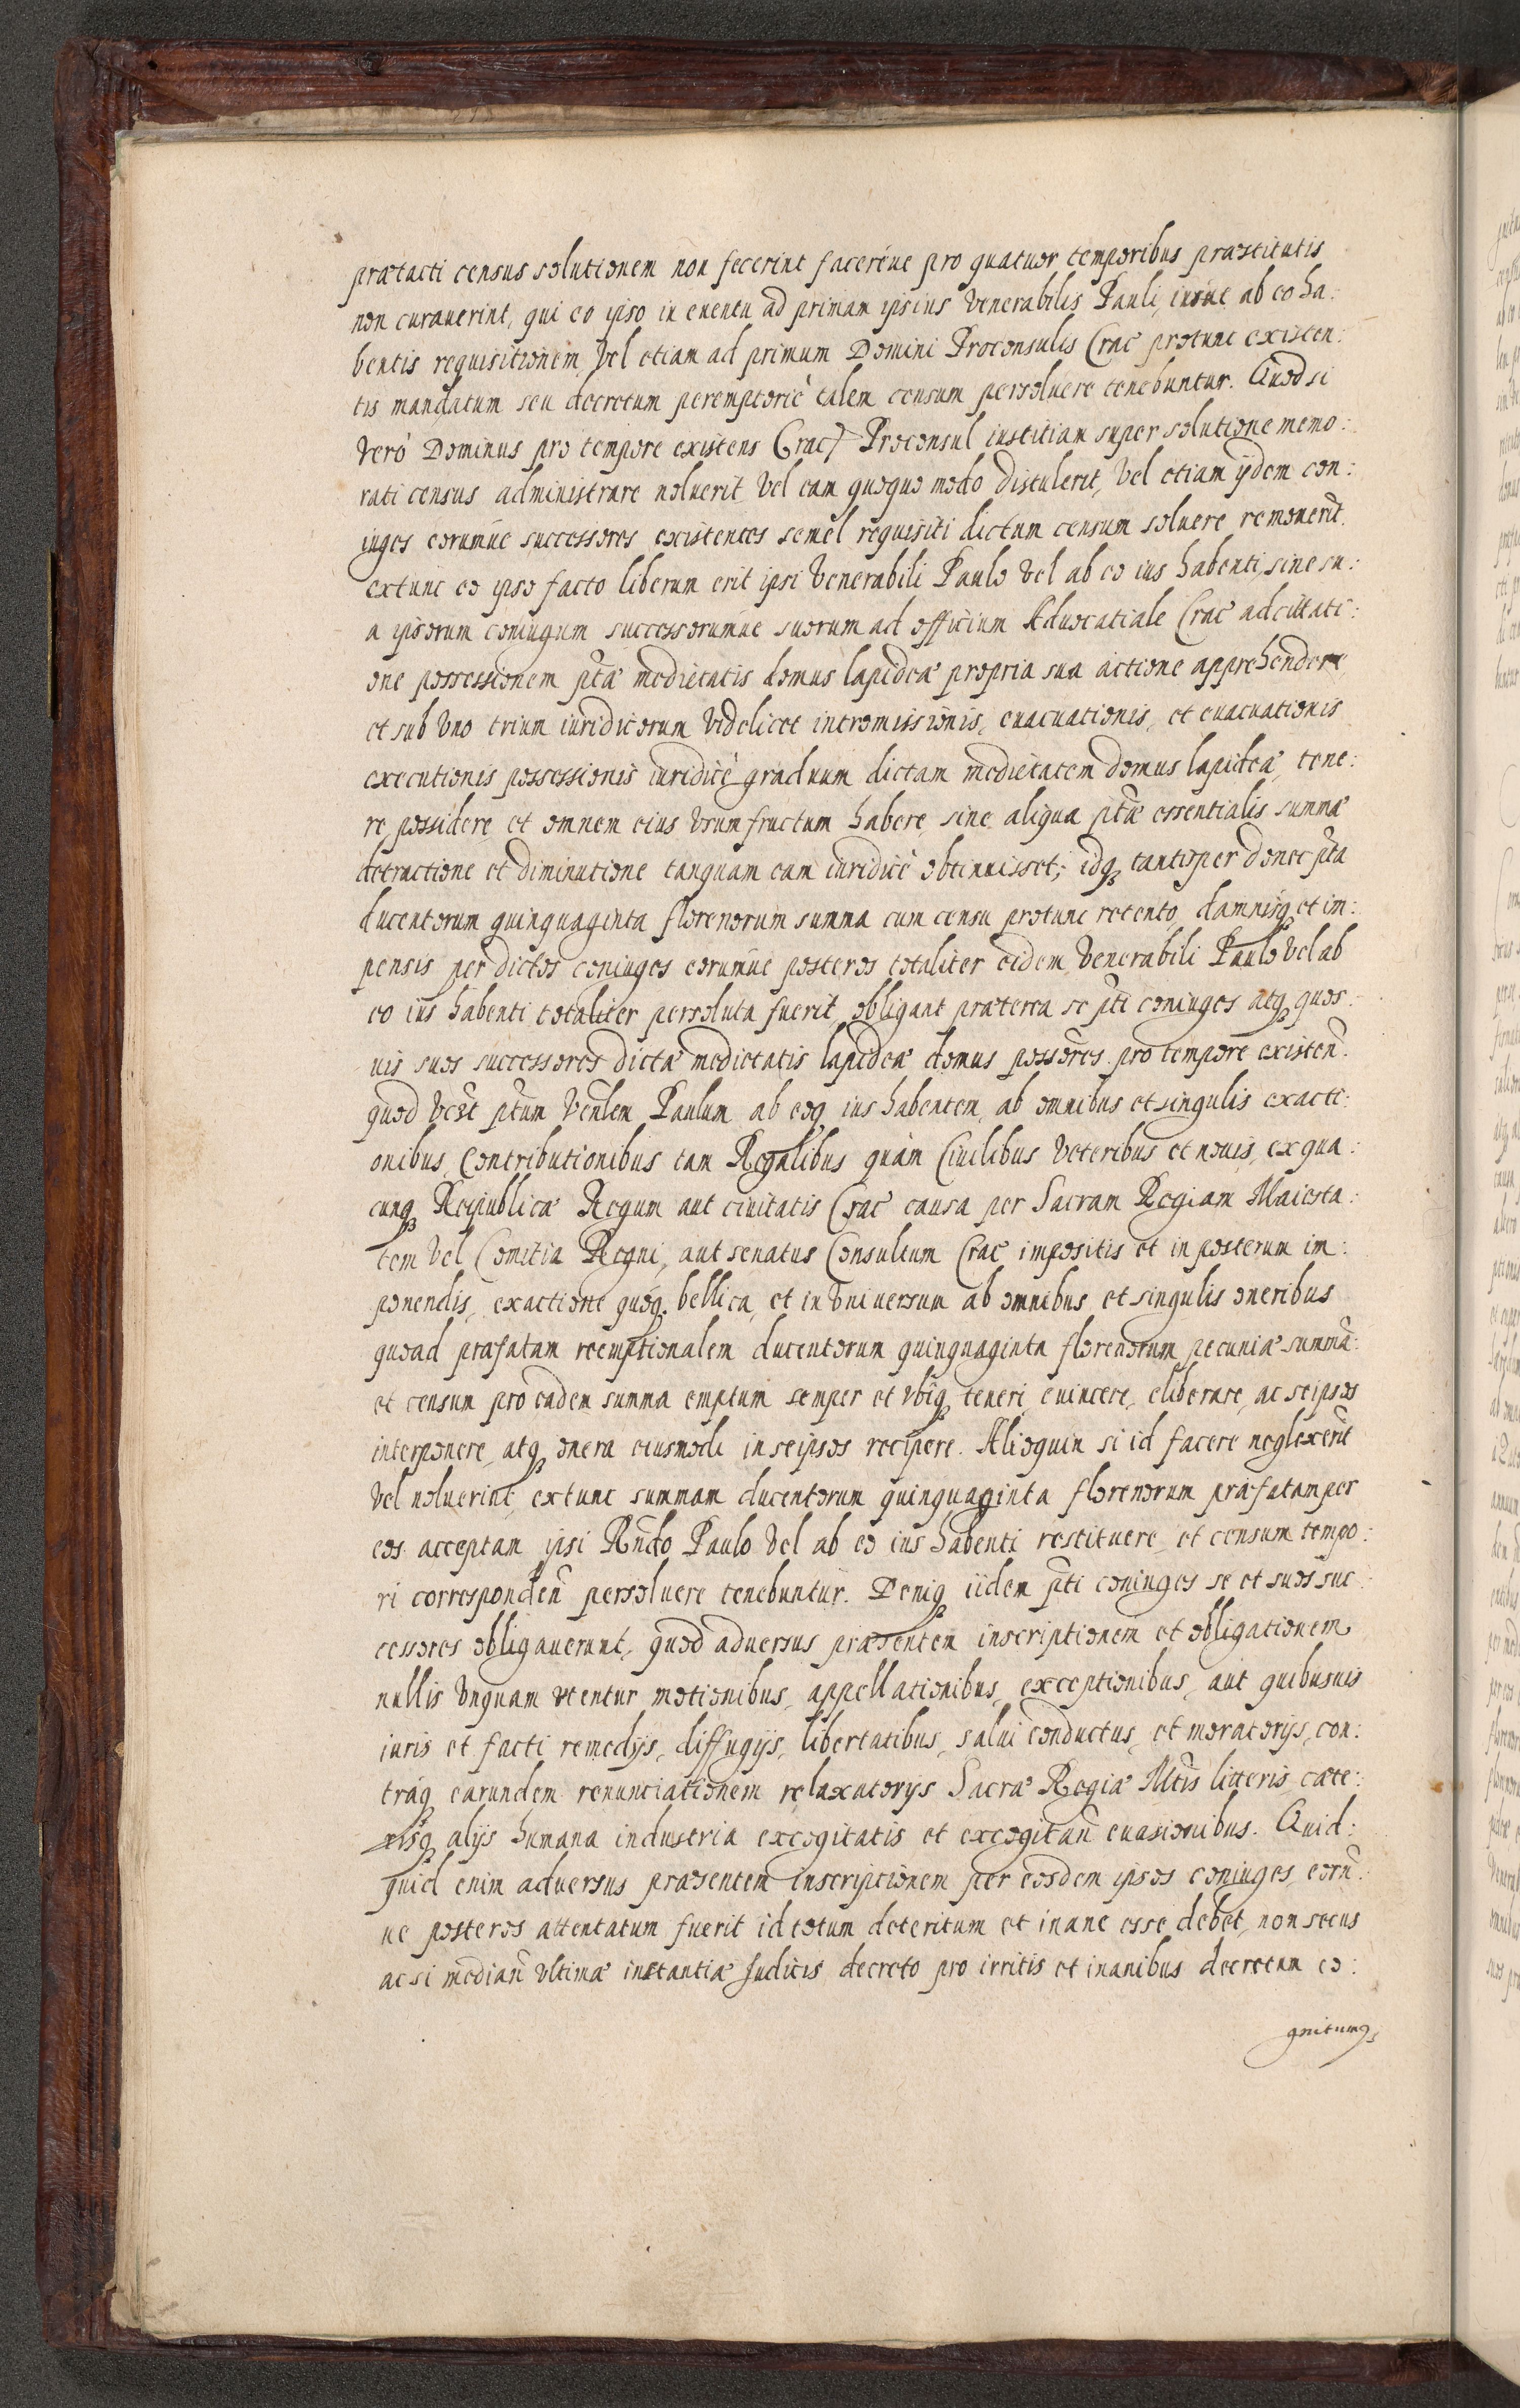 prætacti census solutionem non fecerint facerène pro quatuor temporibus præstitutis
non curauerint, qui eo ipso in euentu ad primam ipsius Venerabilis Pauli, iusue ab eo ha:
bentis requisitionem, Vel etiam ad primum Domini Proconsulis Crac̃ protunc existen:
tis mandatum seu decretum peremptoriè talem censum persoluere tenebuntur. Quod si
Verò Dominus pro tempore existens Crac̃ Proconsul iustitiam super solutione memo:
rati census administrare noluerit Vel eam quoquo modo distulerit, Vel etiam ijdem con:
iuges eorumúe successores existentes semel requisiti dictum censum soluere remouerit̃
extunc eo ipso facto liberum erit ipsi Venerabili Paulo Vel ab eo ius habenti, sine su:
a ipsorum coniugum successorumúe suorum ad officium Aduocatiale Crac̃ adcitati:
one possessionem p̃tæ medietatis domus lapideæ propria sua actione apprehendere,
et sub Vno trium iuridicorum Videlicet intromissionis, euacuationis, et euacuationis
executionis possessionis iuridicè graduum dictam medietatem domus lapideæ, tene:
re possidere, et omnem eius Vsumfructum habere, sine aliqua p̃tæ essentialis summæ
detractione et diminutione tanquam eam iuridicè obtinuisset; idq̢ tantisper donec p̃ta
ducentorum quinquaginta florenorum summa cum censu protunc retento, damnisq̢ et im:
pensis per dictos coniuges eorumúe posteros totaliter eidem Venerabili Paulo Vel ab
eo ius habenti totaliter persoluta fuerit, obligant præterea se p̃ti coniuges atq̢ quos:
uis suos successores dictæ medietatis lapideæ domus possores̃ pro tempore existen̄.
quod p̃tum Ven̄lem Paulum ab eoq̢ ius habentem, ab omnibus et singulis exacti:
onibus, Contributionibus tam Regalibus quàm Ciuilibus Veteribus et nouis, ex qua:
cunq̢ Reipublicæ Regum aut ciuitatis Crac̃ causa per Sacram Regiam Maiesta:
tem Vel Comitia Regni, aut senatus Consultum Crac̃ impositis et in posterum im:
ponendis, exactione quoq̢ bellica, et in Vniuersum ab omnibus et singulis oneribus
quoad præfatam reemptionalem ducentorum quinquaginta florenorum pecuniæ summā:
et censum pro eadem summa emptum semper et Vbiq̢ teneri, euincere, eliberare, ac seipsos
interponere, atq̢ onera eiusmodi in seipsos recipere. Alioquin si id facere neglexerit̃
Vel noluerint, extunc summam ducentorum quinquaginta florenorum præfatam per
eos acceptam ipsi Rn̄do Paulo Vel ab eo ius habenti restituere, et censum tempo:
ri corresponden̄ persoluere tenebuntur. Deniq̢ iidem p̃ti coniuges se et suos suc:
cessores obligauerunt, quod aduersus præsentem inscriptionem et obligationem
nullis Vnquam Vtentur motionibus, appellationibus, exceptionibus, aut quibusuis
iuris et facti remedijs, diffugijs, libertatibus, salui conductus, et moratorijs, con:
traq̢ earundem renunciationem relaxatorijs Sacræ Regiæ Mt̃is litteris, cæte:
risq̢ alijs humana industria excogitatis et excogitan̄ euasionibus. Quid:
quid enim aduersus præsentem inscriptionem per eosdem ipsos coniuges, eorū:
ue posteros attentatum fuerit id totum deteritum et inane esse debet, non secus
acsi median̄ Vltimæ instantiæ Iudicis decreto pro irritis et inanibus decretum co:
gnitumq̢